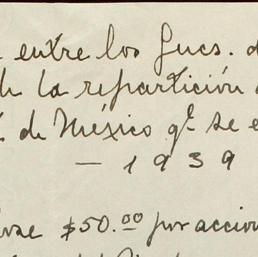 entre los Sucs. d
la repartición
de México q^e se e
— 1939
$50.00 por accion